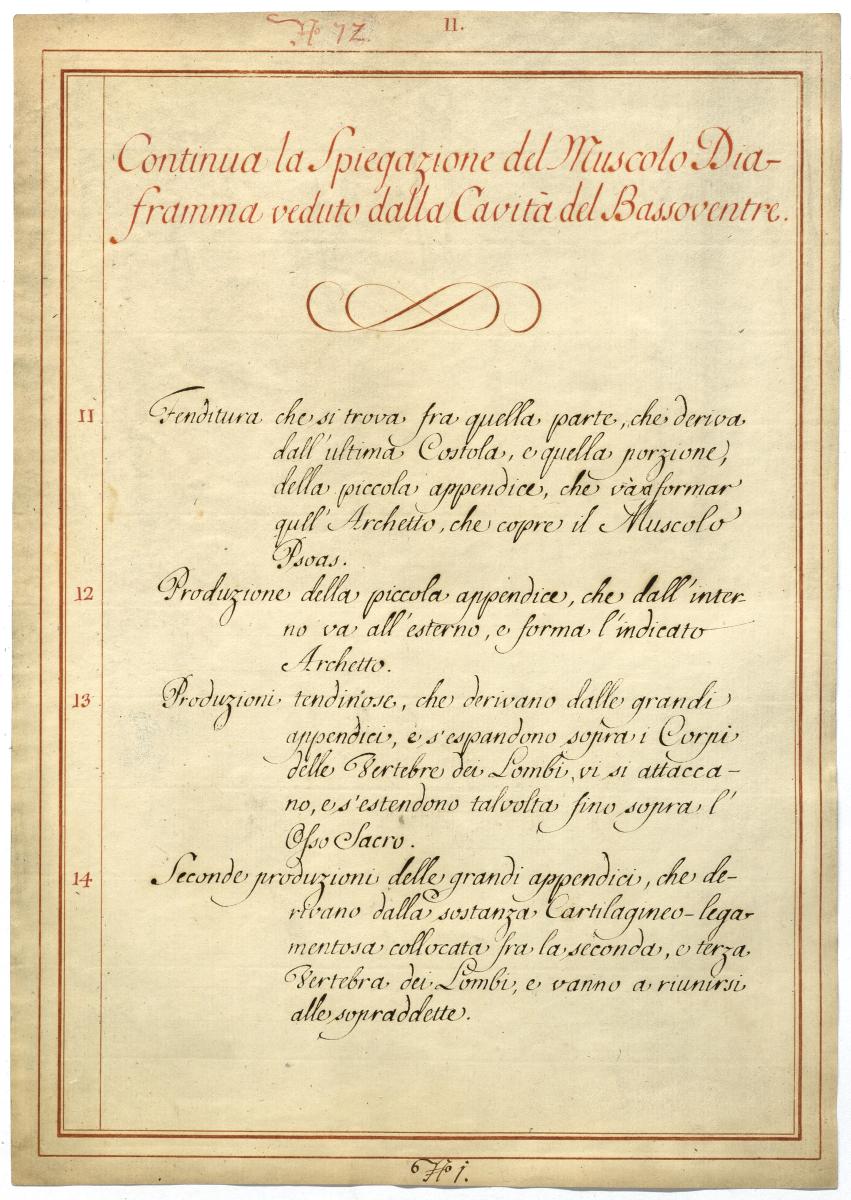 No 72
II.
Continua la Spiegazione del Muscolo Dia-
framma veduto dalla Cavità del Bassoventre.
11 Fenditura che si trova fra quella parte, che deriva
dall'ultima Costola, e quella porzione,
della piccola appendice, che và a formar
qull' Archetto, che copre il Muscolo
Psoas.
12 Produzione della piccola appendice, che dall'inter-
no va all'esterno, e forma l'indicato
Archetto.
13 Produzioni tendinose, che derivano dalle grandi
appendici, e s'espandono sopra i Corpi
delle Vertebre dei Lombi, vi si attacca-
no, e s'estendono talvolta fino sopra l'
Osso Sacro.
14 Seconde produzioni delle grandi appendici, che de-
rivano dalla sostanza Cartilagineo-lega-
mentosa collocata fra la seconda, e terza
Vertebra dei Lombi, e vanno a riunirsi
alle sopraddette.